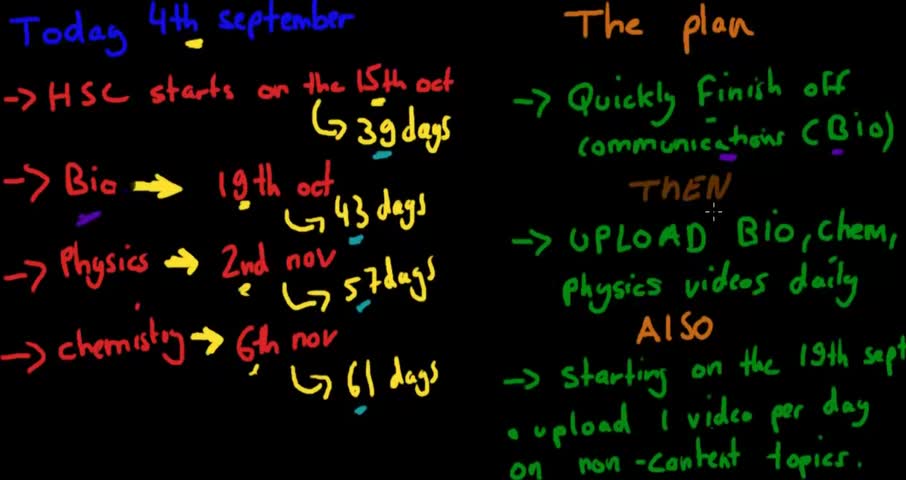 Today 4th september
-> HSC starts on the 15th oct
39 days
-> Bio -> 19th oct
43 days
-> Physics -> 2nd nov
57 days
-> chemistry -> 6th nov
61 days
The plan
-> Quickly Finish off
communications (Bio)
THEN
-> UPLOAD Bio, chem,
physics videos daily
ALSO
-> starting on the 19th sept
• upload 1 video per day
on non-content topics.